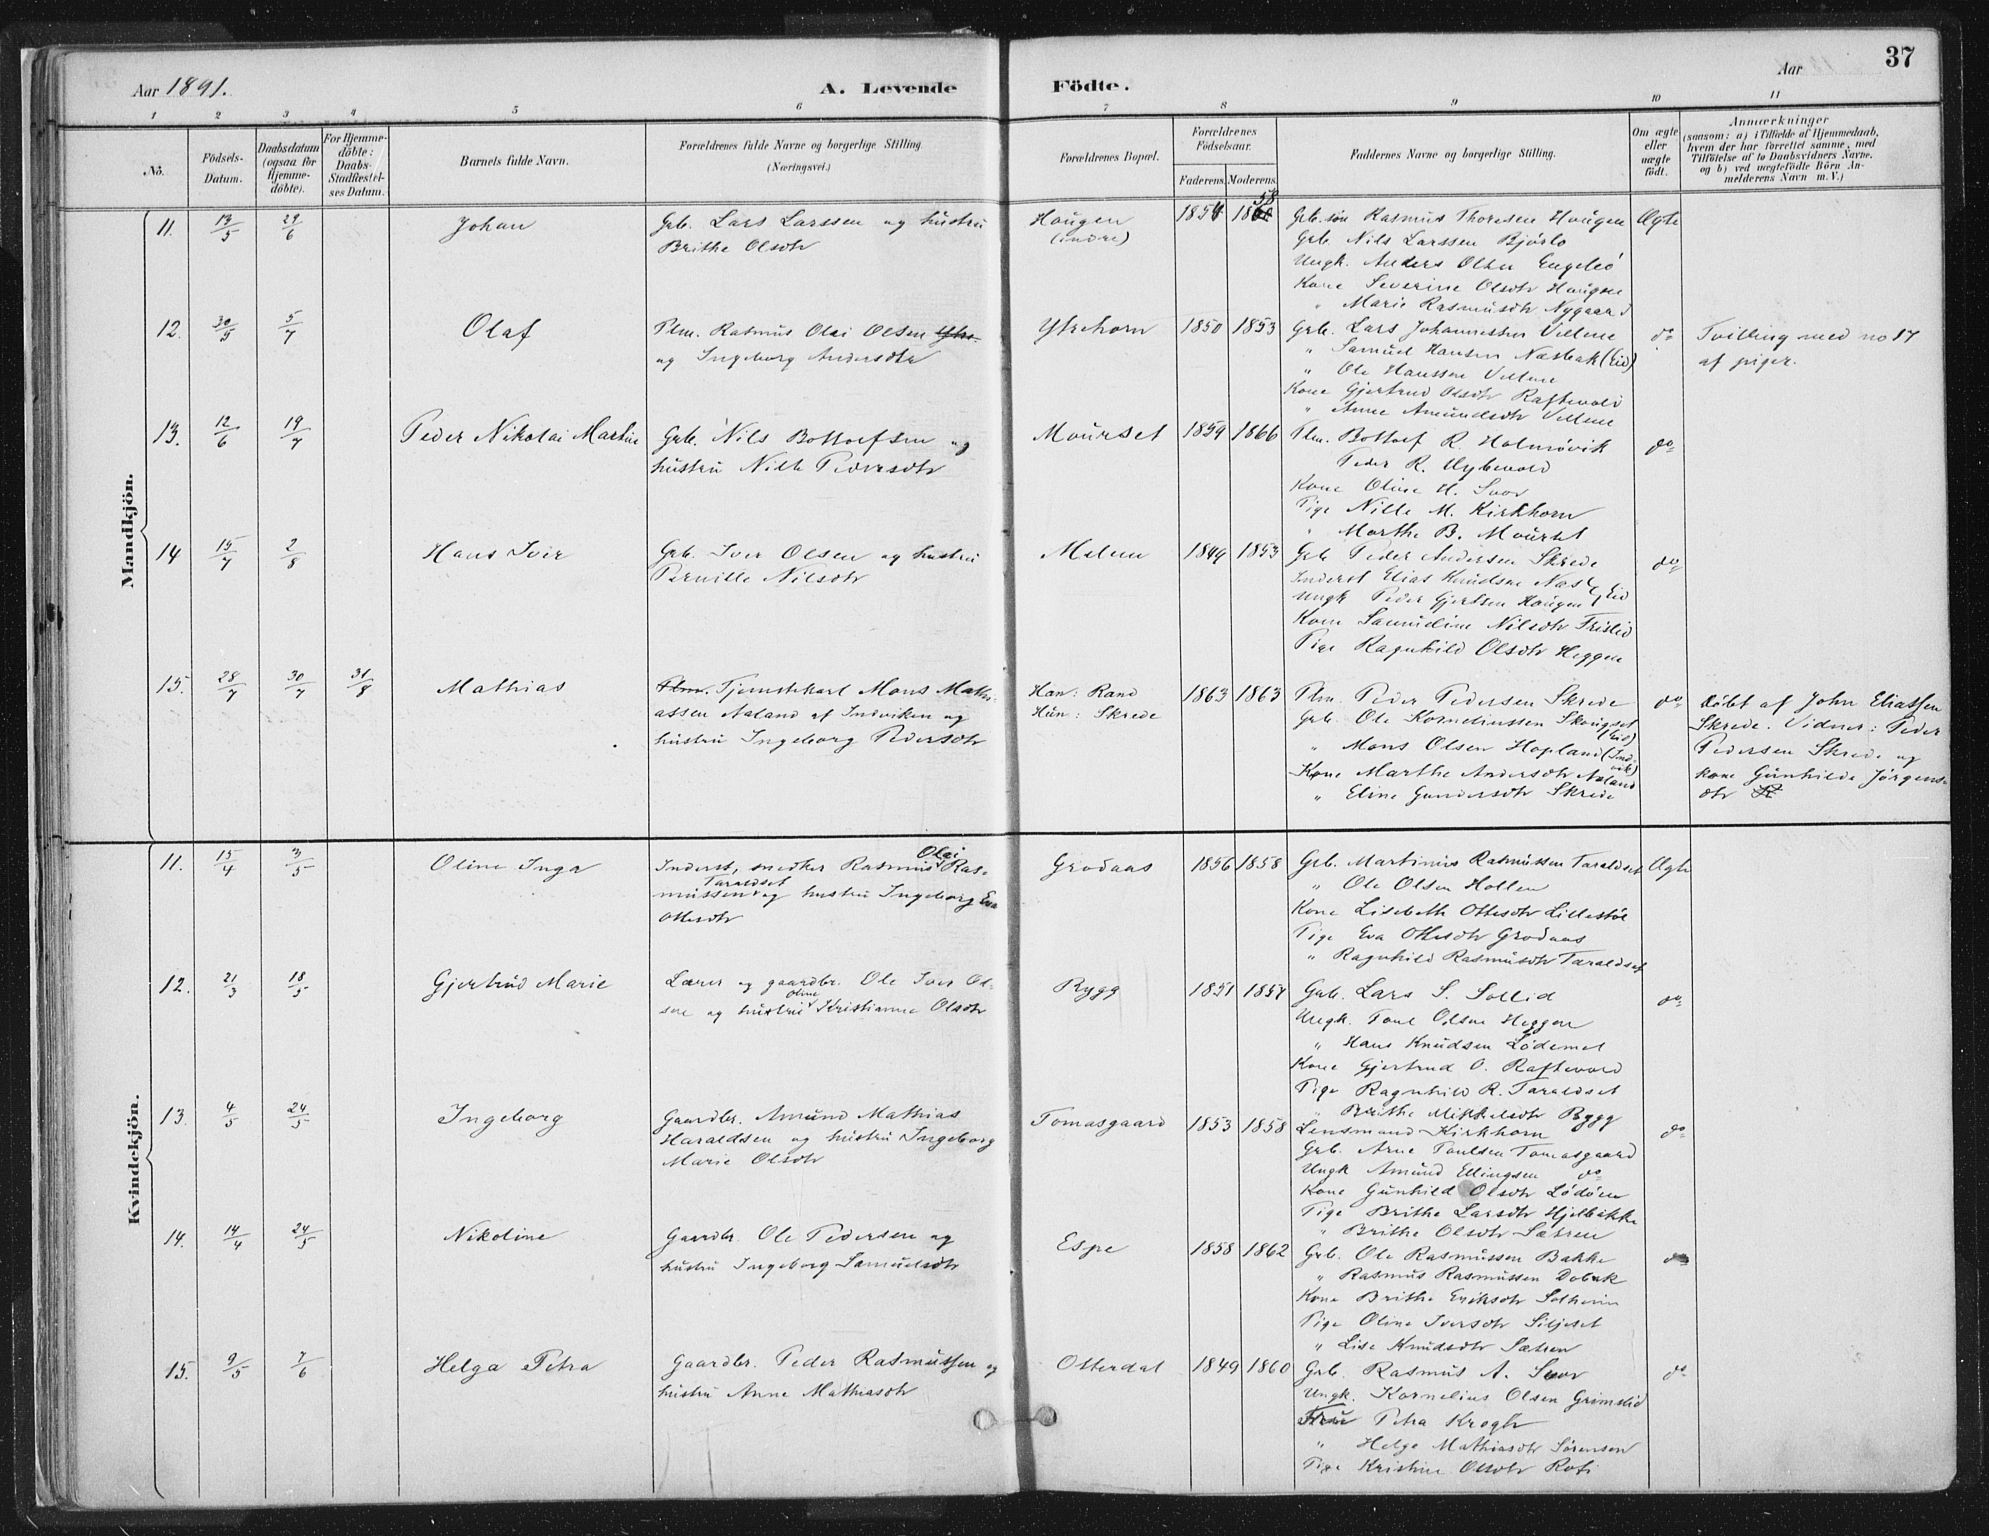 37
Aar 1891.
A. Levende Födte.
Aar
1 2 3 4 5 6 7 8 9 10 11
No.
Födsels-Datum.
Daabsdatum (ogsaa for Hjemme-döbte).
For Hjemme-döbte: Daabs-Stadfæstel-ses Datum.
Barnets fulde Navn.
Forældrenes fulde Navne og borgerlige Stilling
(Næringsvei.)
Forældrenes Bopæl.
Forældrenes Födselsaar.
Faderens. Moderens.
Faddernes Navne og borgerlige Stilling.
Om ægte eller uægte födt.
Anmærkninger
(saasom: a) i Tilfælde af Hjemmedaab,
hvem der har forrettet samme, med
Tilföielse af to Daabsvidners Navne.
og b) ved uægtefödte Börn An-
melderens Navn m. V.)
Mandkjön.
11. 13/5 29/6 Johan
Grb. Lars Larssen og hustru
Brithe Olsdtr
Haugen
(indre)
58
Grb.søn Rasmus Thoresen Haugen
Grb. Nils Larssen Bjørlo
Ungk. Anders Olsen
Kone Severine Olsdtr Haugen
" Marie Rasmusdtr Nygaard
Ægte
12. 30/5 5/7 Olaf
Plm. Rasmus Olai Olsen
og Ingeborg Andersdtr
Ytrehorn 1850 1853
Grb. Lars Johannessen
" Samuel Hansen Næsbak (Eid)
" Ole Hanssen
Kone Gjertrud Olsdtr Raftevold
" Anne Amundsdtr
do
Tvilling med no 17
af piger.
13. 12/6 19/7 Peder Nikolai Martin
Grb. Nils Bottolfsen og
hustru Nille Pedersdtr
Mourset 1859 1866
Plm. Bottolf R. Holmøvik
Peder R. Nybevold
Kone Oline H. Svor
Pige Nille M. Kirkhorn
" Marthe B. Mourset
do
14 15/7 2/8 Hans Iver
Grb. Iver Olsen og hustru
Pernille Nilsdtr
1849 1853
Grb Peder Andersen Skrede
Inderst Elias Knudsen Næs
Ungk Peder Gjertsen Haugen } Eid
Kone Samueline Nilsdtr Frislid
Pige Ragnhild Olsdtr Heggen
do
15. 28/7 30/7 31/8 Mathias
Plm. Tjenestekarl Mons Mathi-
assen Aaland af Indviken og
hustru Ingeborg Pedersdtr
Han: Rand
Hun: Skrede
1863 1863
Plm. Peder Pedersen Skrede
Grb. Ole Korneliussen Skougset
(Eid)
" Mons Olsen Hopland (Ind-
vik)
Kone Marthe Andersdtr Aaland
" Eline Gundersdtr Skrede
do
Döbt af John Eliassen
Skrede. Vidner: Peder
Pedersen Skrede og
kone Gunhilde Jörgens-
dtr
Kvindekjön.
11. 15/4 3/5 Oline Inga
Olai
Inderst, snedker Rasmus Ras-
Taraldset
mussen og hustru Ingeborg Eva
Ottesdtr
Grodaas 1856 1858
Grb. Martinus Rasmussen Taraldset
" Ole Olsen Hollen
Kone Lisebeth Ottesdtr Lillestöl
Pige Eva Ottesdtr Grodaas
" Ragnhild Rasmusdtr Taraldset
Ægte
12. 21/3 18/5 Gjertrud Marie
Lærer og gaardbr. Ole Iver Ol-
Oline
sen og hustru Kristianne Olsdtr
Rygg 1851 1857
Grb. Lars S. Sollid
Ungk. Poul Olsen Heggen
" Hans Knudsen Lödemel
Kone Gjertrud O. Raftevold
Pige Ragnhild R. Taraldset
" Brithe Mikkelsdtr Rygg
do
13. 4/5 24/5 Ingeborg
Gaardbr. Amund Mathias
Haraldsen og hustru Ingeborg
Marie Olsdtr
Tomasgaard 1853 1858
Lensmand Kirkhorn
Grb. Arne Poulsen Tomasgaard
Ungk Amund Ellingsen do
Kone Gunhild Olsdtr Lödöen
Pige Brithe Larsdtr Hjelbakke
" Brithe Olsdtr Sætren
do
14. 14/4 24/5 Nikoline
Gaardbr. Ole Pedersen og
hustru Ingeborg Samuelsdtr
Espe 1858 1862
Grb. Ole Rasmussen Bakke
" Rasmus Rasmussen Dobak
Kone Brithe Eriksdtr Solheim
Pige Oline Iversdtr Siljeset
" Lise Knudsdtr Sætren
do
15. 9/5 7/6 Helga Petra
Gaardbr. Peder Rasmussen og
hustru Anne Mathiasdtr
Otterdal 1849 1860
Grb. Rasmus A. Svor
Ungk. Kornelius Olsen Grimslid
Frue Petra Krogh
" Helga Mathiasdtr Sørensen
Pige Kristine Olsdtr Roti
do